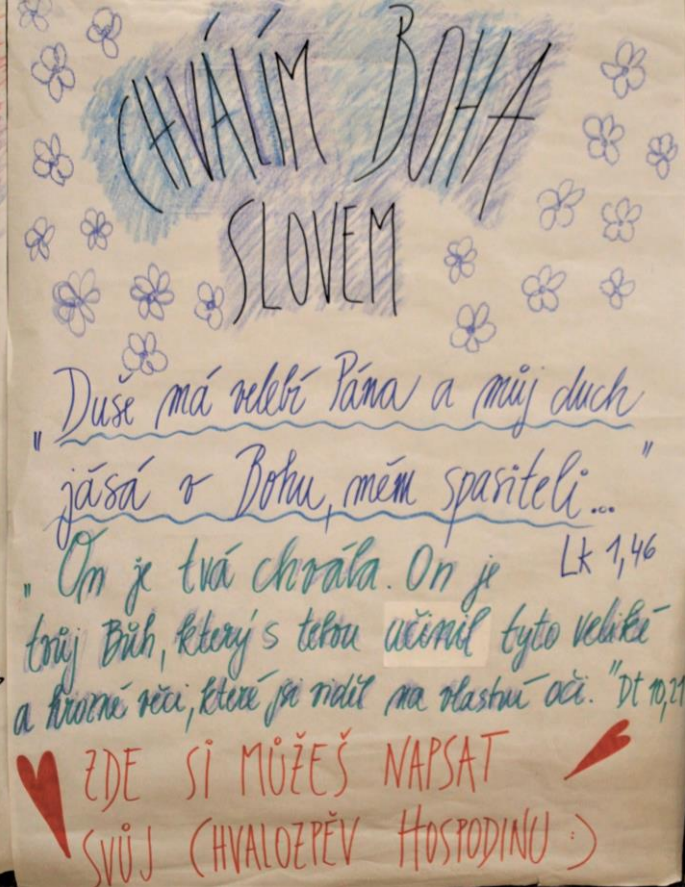 CHVÁLÍM BOHA
SLOVEM
„Duše má velebí Pána a můj duch
jásá v Bohu, mém spasiteli..."
Lk 1,46
„On je tvá chvála. On je
tvůj Bůh, který s tebou učinil tyto veliké
a hrozné věci, které jsi viděl na vlastní oči." Dt 10,21
ZDE SI MŮŽEŠ NAPSAT
SVŮJ CHVALOZPĚV HOSPODINU :)